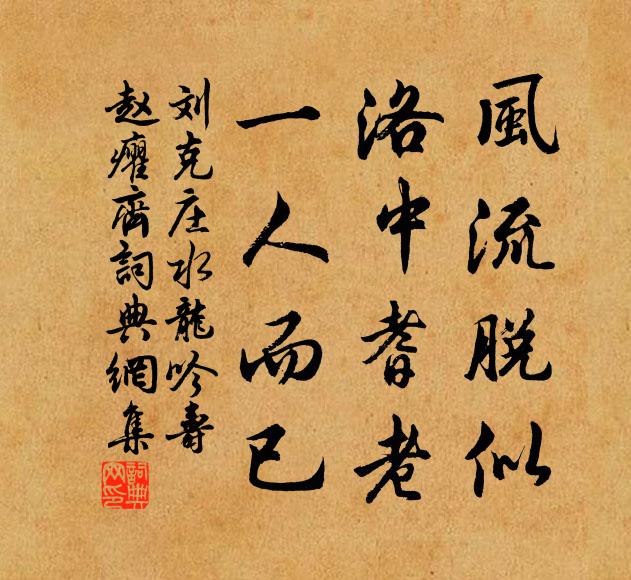 風流脱似
洛中耆老
一人而已
刘克庄水龍吟壽
赵癯齊詞典網集
詞典網印